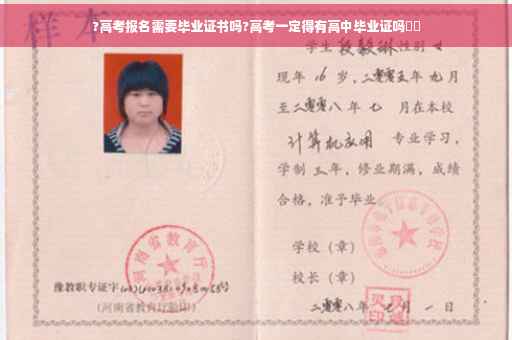 ?高考报名需要毕业证书吗?高考一定得有高中毕业证吗
样本
学生 段毅琳 性别 女
现年 16 岁，二零零五年 九月
至二零零八年 七 月在本校
计算机应用 专业学习，
学制 三 年，修业期满，成绩
合格，准予毕业
学校（章）
校长（章）
二零零八年 七 月 一 日
河南省教育厅
豫教职专证字
（河南省教育厅验印）